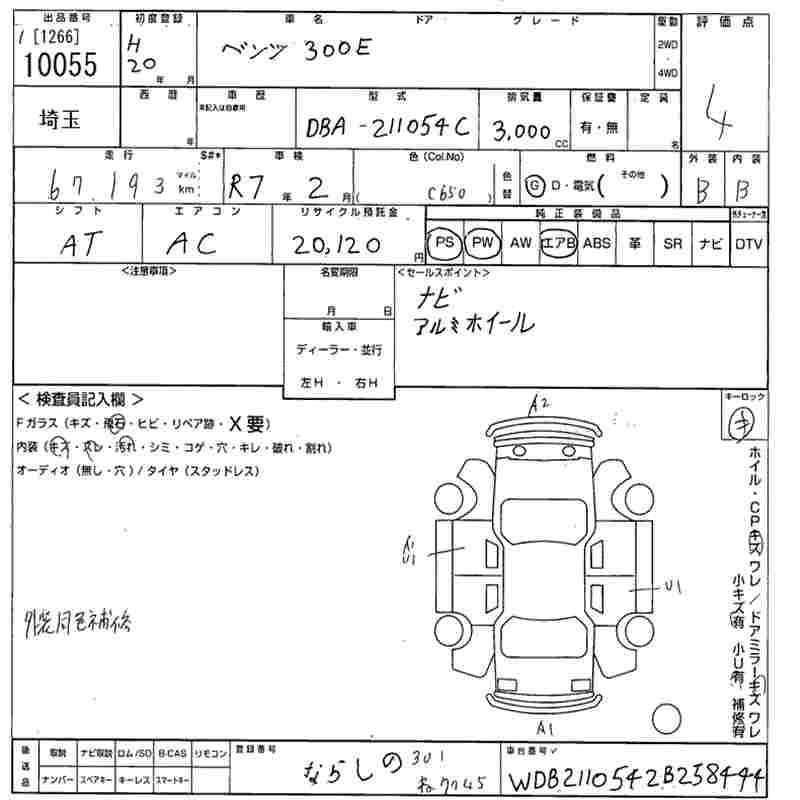 出品番号 初度登録 車名 ドア グレード 駆動 評価点
1 [1266] H ベンツ 300E 2WD
10055 20 年 月 4WD 4
埼玉 西暦 年 車歴 未記入は自家用 型式 DBA-211054C 排気量 3,000 CC 保証書 有・無 定員 名
走行 S#* 車検 色(Col.No) 色替 燃料 外装 内装
67,193 マイル km R7 年 2 月 ( C650 ) G D・電気( その他 ) B B
シフト エアコン リサイクル預託金 純正装備品
AT AC 20,120 円 PS PW AW エアB ABS 革 SR ナビ DTV
<注意事項> 名変期限 <セールスポイント>
月 日 ナビ
輸入車 アルミホイール
ディーラー・並行
左H ・ 右H
< 検査員記入欄 > A2 キーロック
Fガラス(キズ・飛石・ヒビ・リペア跡・X要) キ
内装(キズ・スレ・汚れ・シミ・コゲ・穴・キレ・破れ・割れ)
オーディオ(無し・穴)/タイヤ(スタッドレス)
ホイル・CPキズワレ/ドアミラーキズワレ
小キズ有 小U有 補修有
A1
U1 U1
外装同色補修
A1
後送品 取説 ナビ取説 ロム/SD B-CAS リモコン 登録番号 車台番号
ナンバー スペアキー キーレス スマートキー ならしの 301 ね 7745 WDB2110542B258444